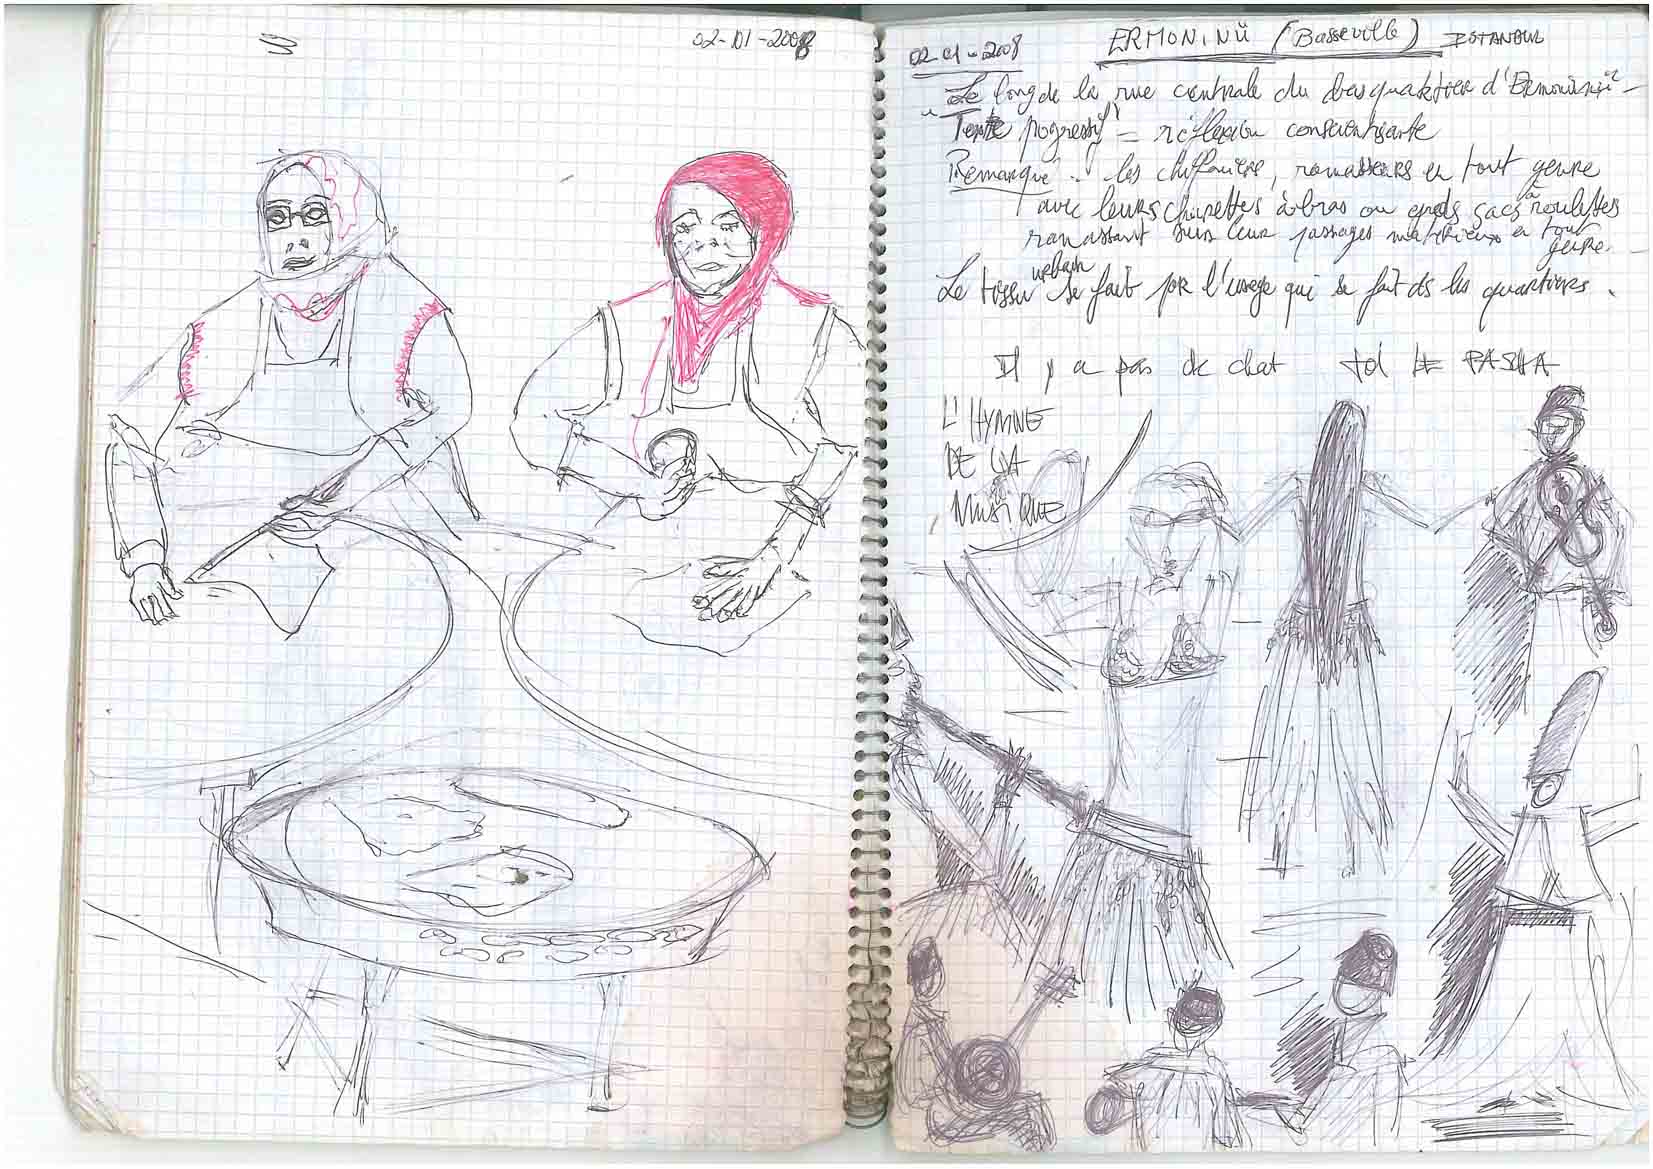 02-01-2008
02-01-2008
ERMONINÜ (Basseville) ISTANBUL
Le long de la rue centrale du bas quartier d'Ermoninü -
Texte progressif = réflexion conscientisante
Remarque : les chifonière, ramasseurs en tout genre
avec leurs charettes à bras ou grds sacs à roulettes
ramassant sur leur passages matériaux en tout
genre.
Le tissu urbain se fait par l'usage qui se fait ds les quartiers.
Il y a pas de chat toi LE PASHA
L'HYMNE
DE LA
MUSIQUE